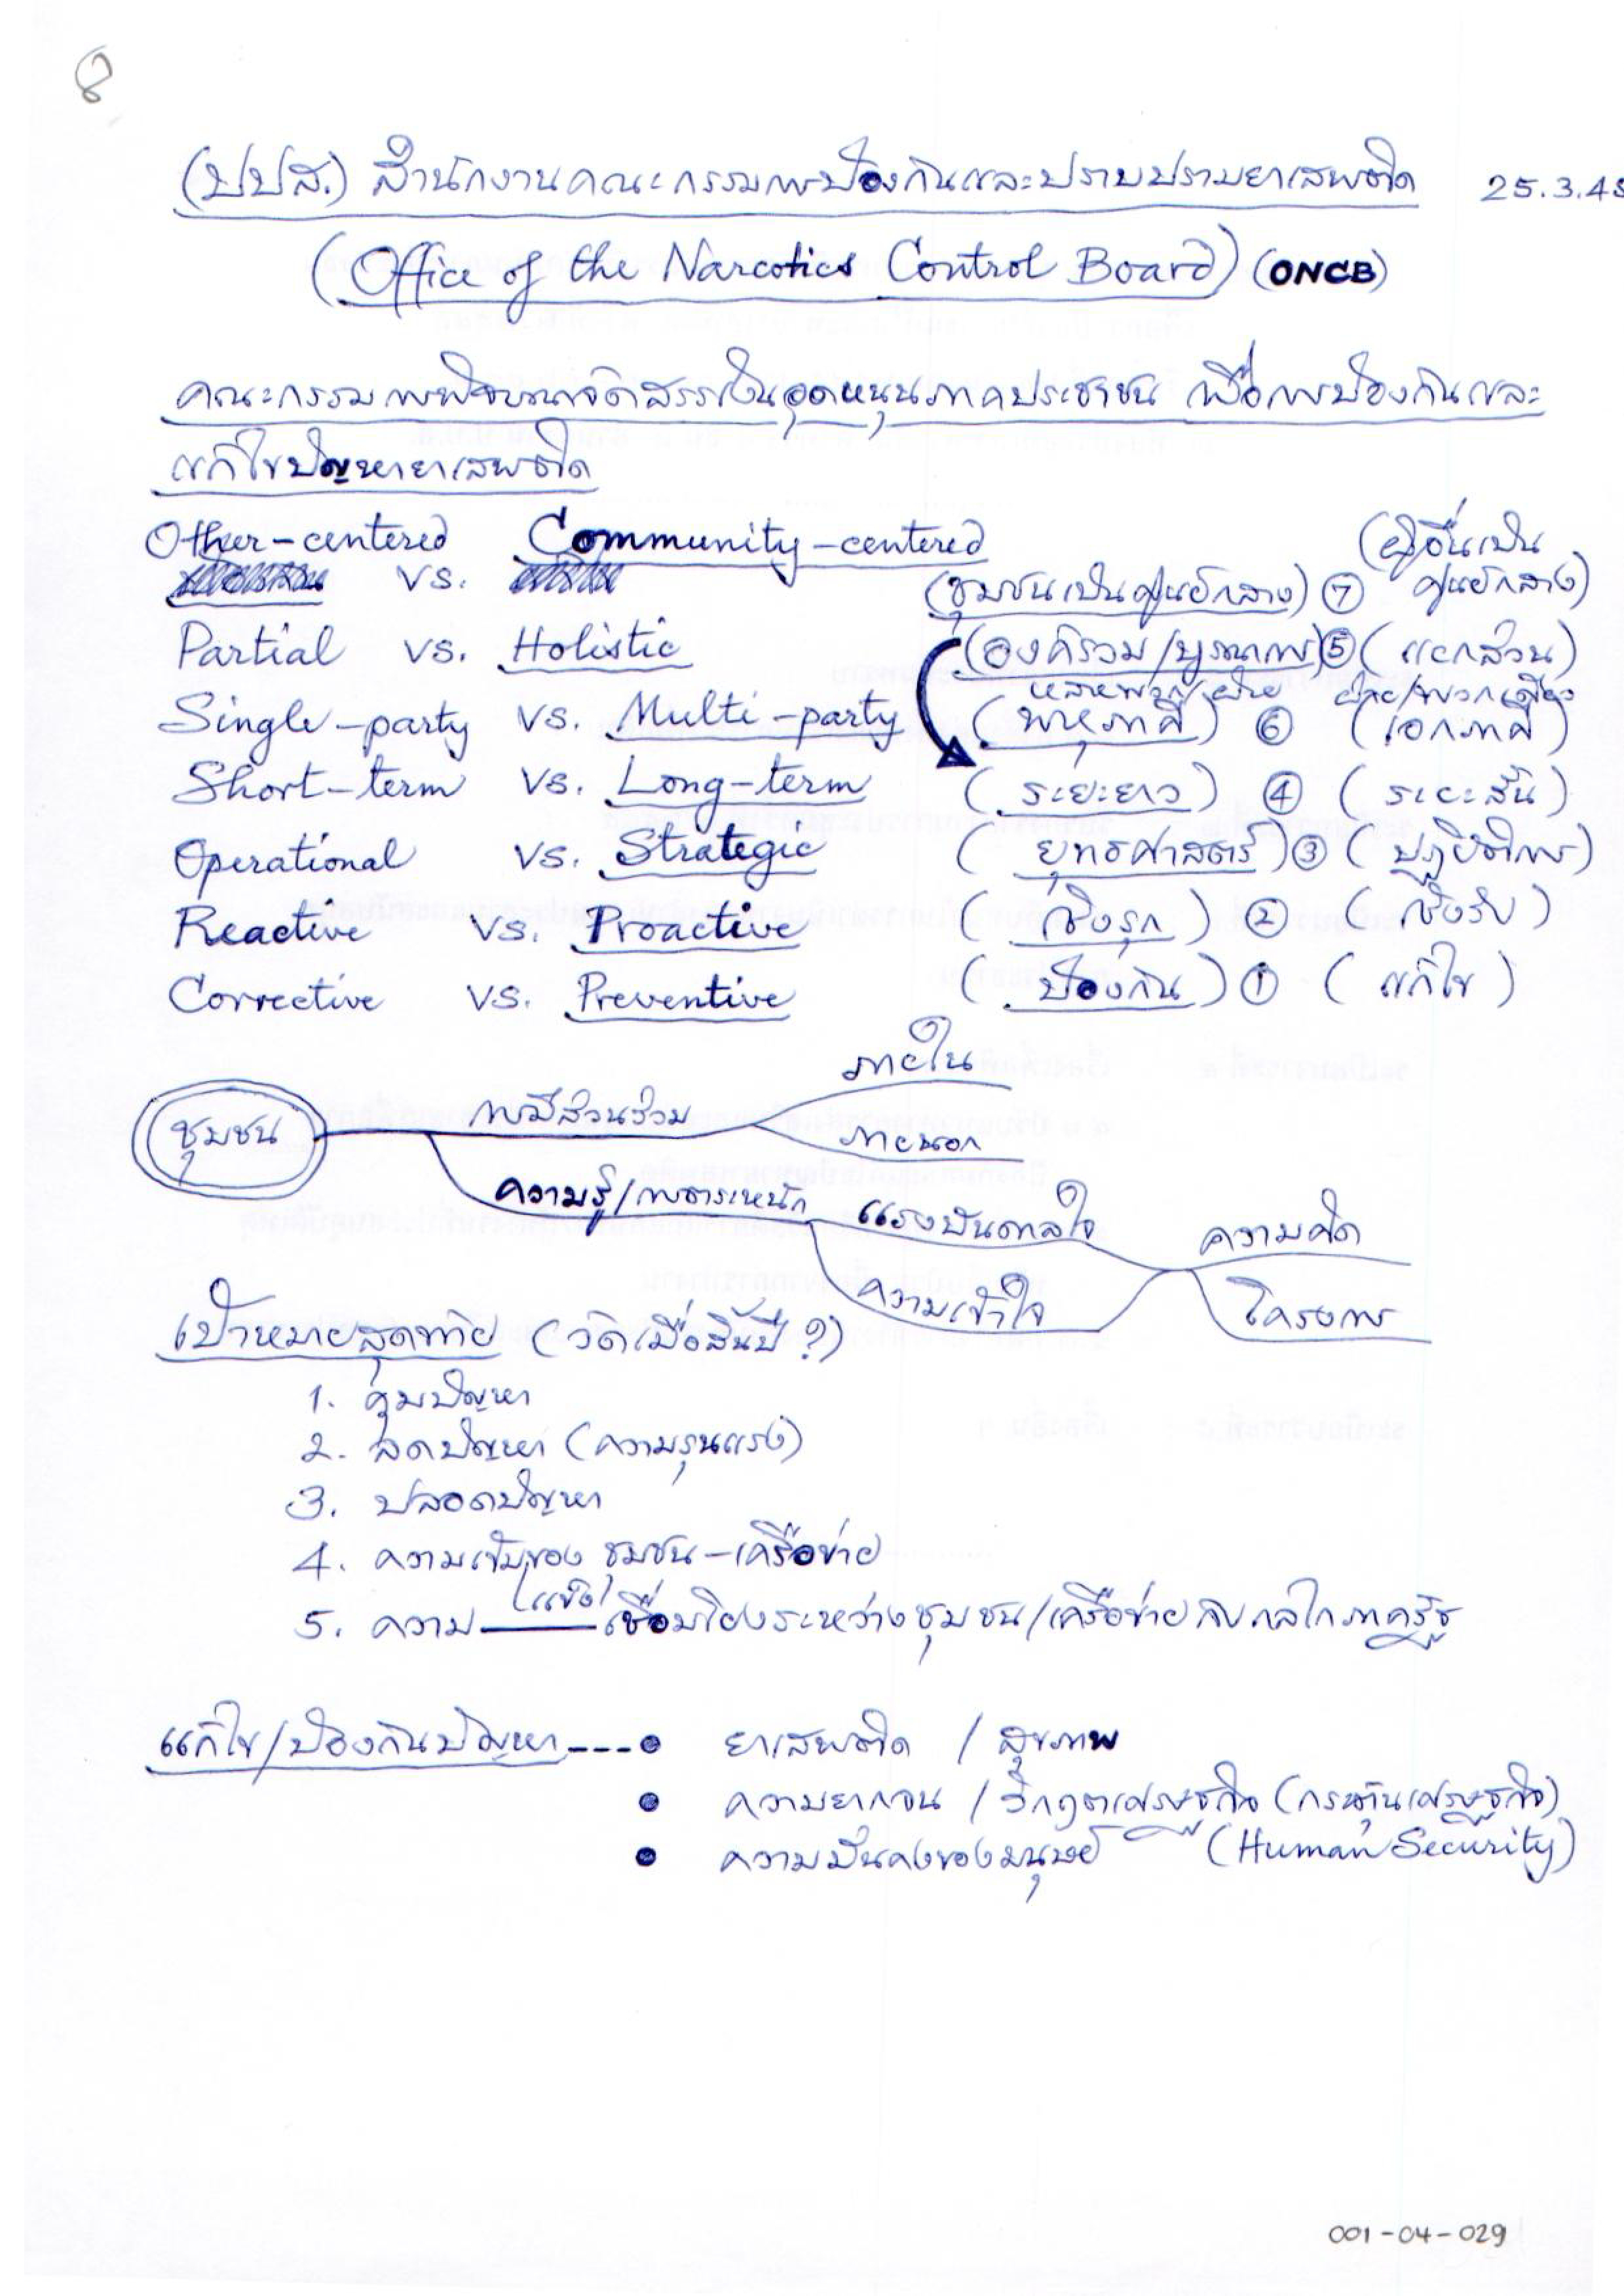 8
(ปปส.) สำนักงานคณะกรรมการป้องกันและปราบปรามยาเสพติด 25.3.45
(Office of the Narcotics Control Board) (ONCB)
คณะกรรมการพิจารณาจัดสรรเงินอุดหนุนภาคประชาชน เพื่อการป้องกันและ
แก้ไขปัญหายาเสพติด
Other-centered Community-centered (ผู้อื่นเป็น
vs. (ชุมชนเป็นศูนย์กลาง) ⑦ ศูนย์กลาง)
Partial vs. Holistic (องค์รวม/บูรณาการ) ⑤ (แยกส่วน)
หลายพวก/ฝ่าย ฝ่าย/พวกเดียว
Single-party vs. Multi-party (พหุภาคี) ⑥ (เอกภาคี)
Short-term vs. Long-term (ระยะยาว) ④ (ระยะสั้น)
Operational vs. Strategic (ยุทธศาสตร์) ③ (ปฏิบัติการ)
Reactive vs. Proactive (เชิงรุก) ② (เชิงรับ)
Corrective vs. Preventive (ป้องกัน) ① (แก้ไข)
ภายใน
ชุมชน การมีส่วนร่วม
ภายนอก
ความรู้/การตระหนัก แรงบันดาลใจ ความคิด
ความเข้าใจ โครงการ
เป้าหมายสุดท้าย (วัดเมื่อสิ้นปี ?)
1. คุมปัญหา
2. ลดปัญหา (ความรุนแรง)
3. ปลอดปัญหา
4. ความเข้มของ ชุมชน-เครือข่าย
แข็ง
5. ความ เชื่อมโยงระหว่างชุมชน/เครือข่าย กับกลไกภาครัฐ
แก้ไข/ป้องกันปัญหา ---● ยาเสพติด / สุขภาพ
● ความยากจน / วิกฤตเศรษฐกิจ (กระตุ้นเศรษฐกิจ)
● ความมั่นคงของมนุษย์ (Human Security)
001-04-029